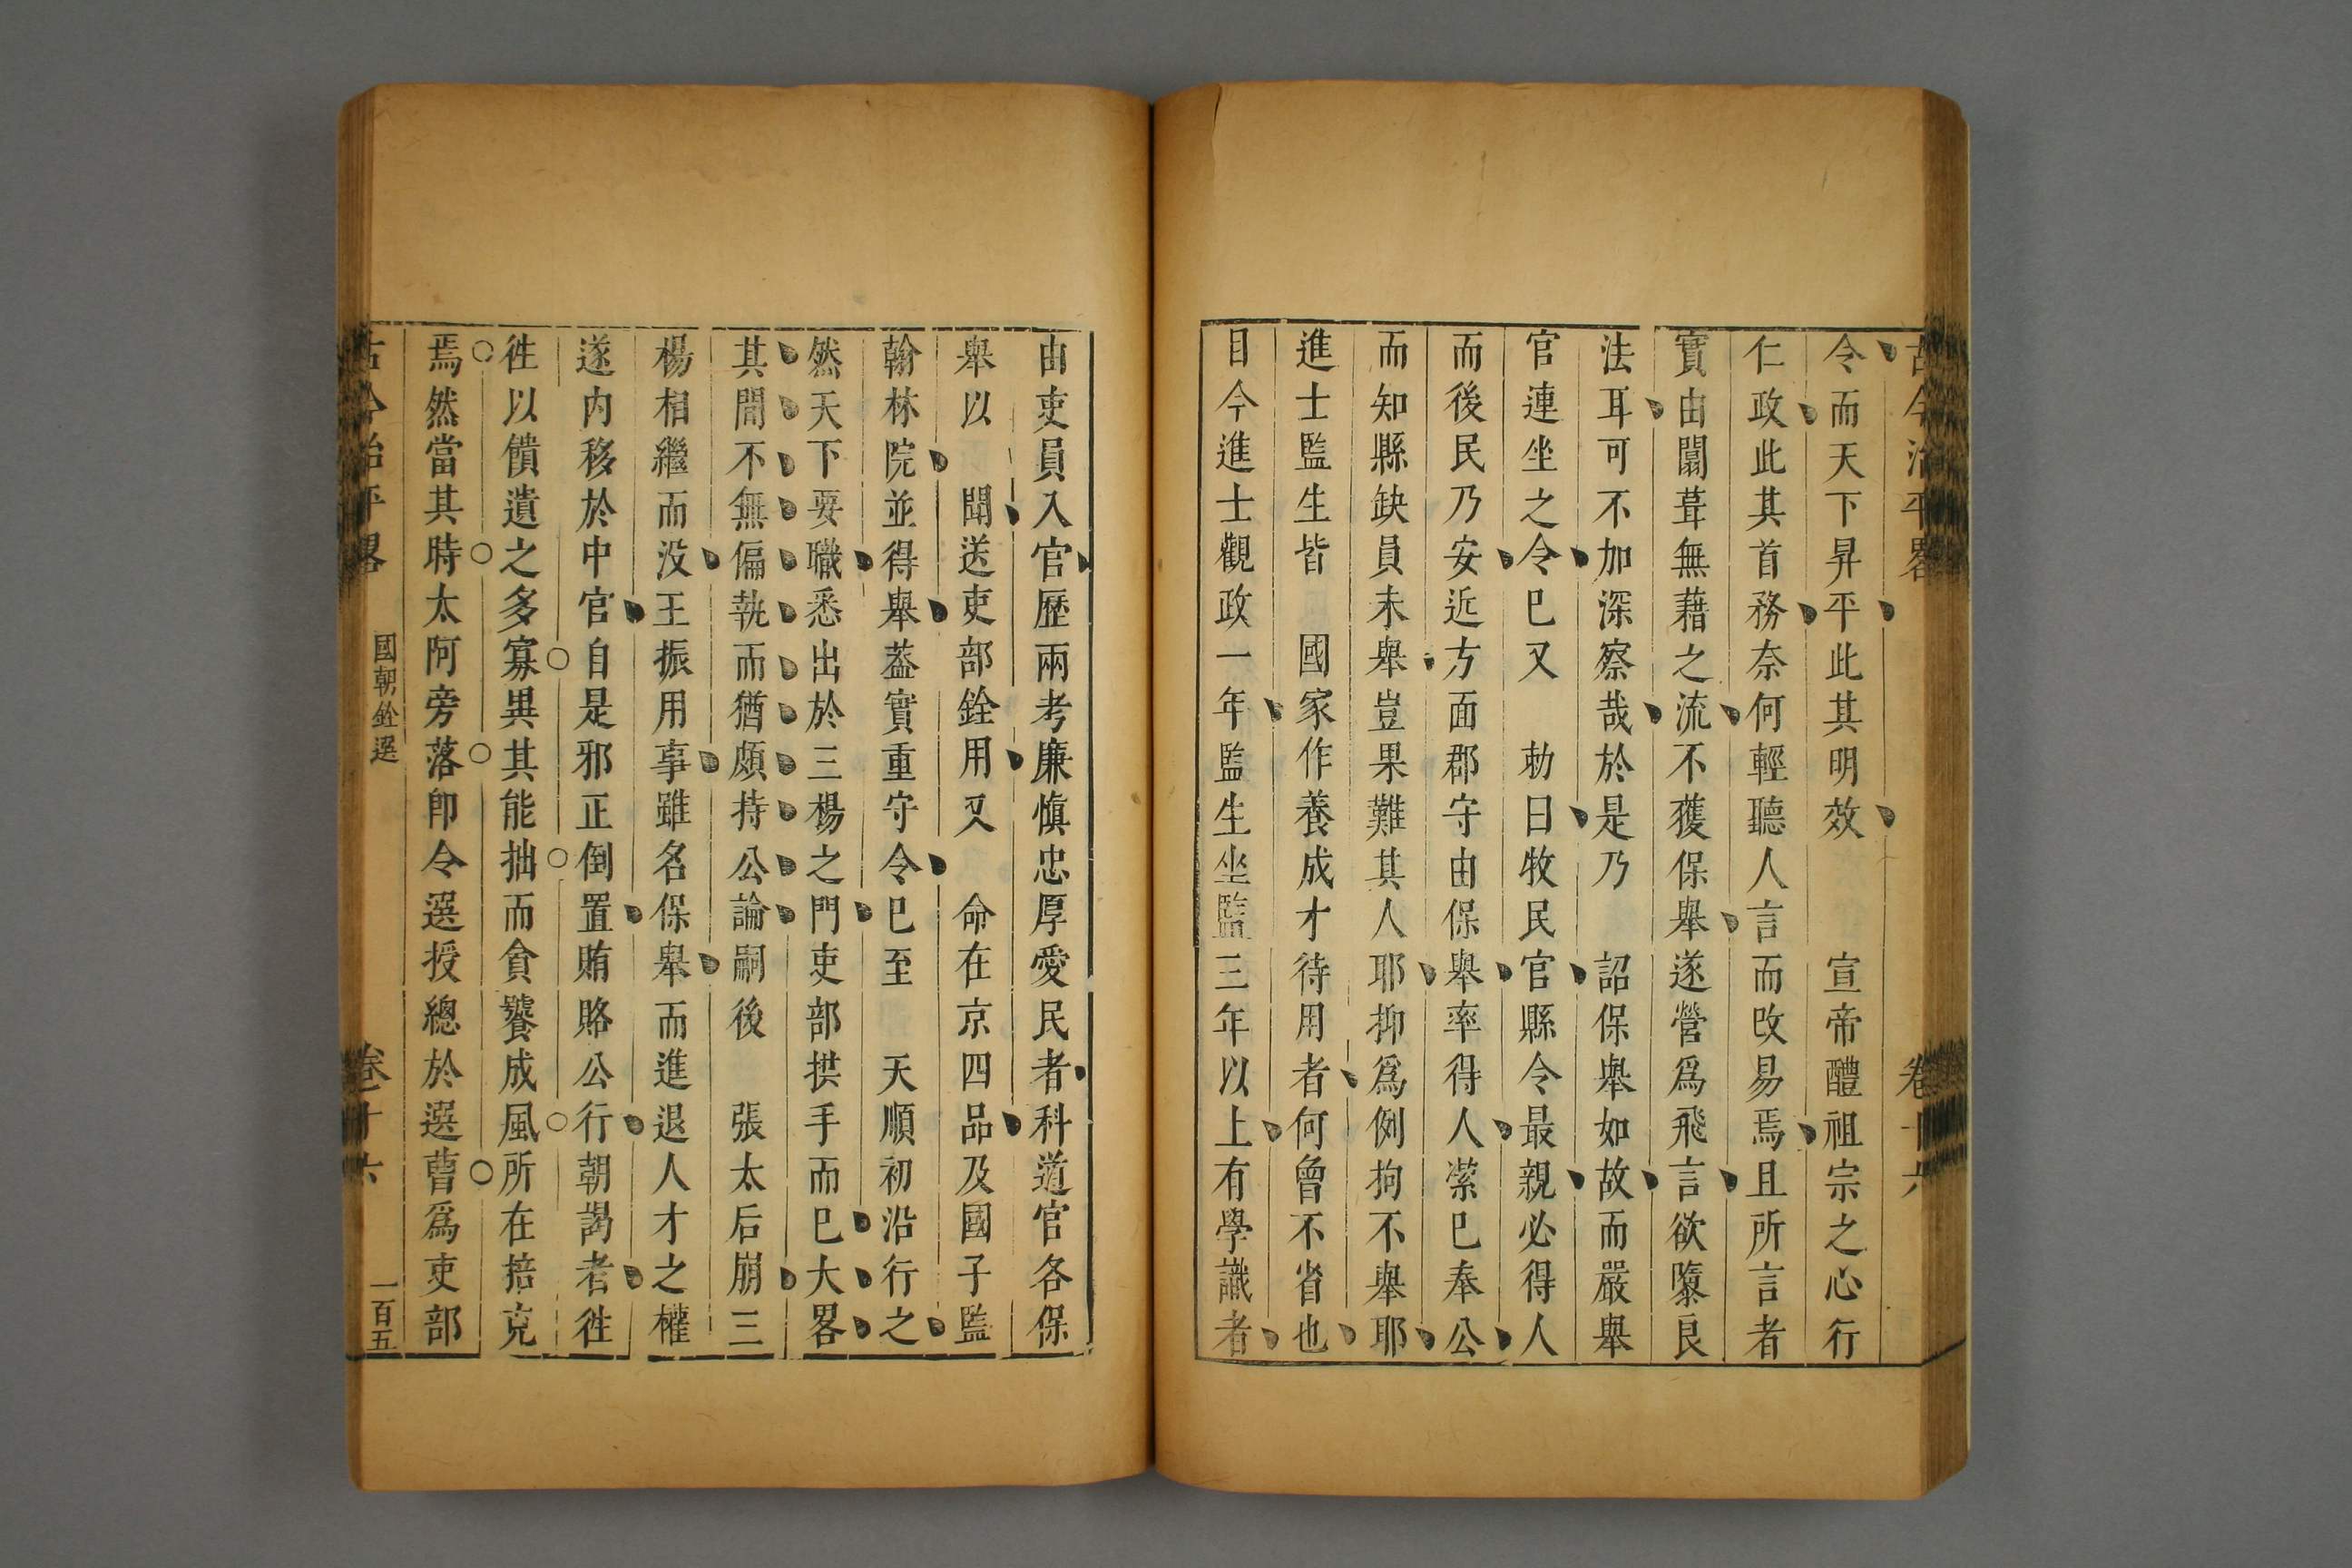 古今治平畧 卷十六
令而天下昇平此其明效 宣帝醴祖宗之心行
仁政此其首務奈何輕聽人言而改易焉且所言者
實由闒葺無藉之流不獲保舉遂營爲飛言欲隳良
法耳可不加深察哉於是乃 詔保舉如故而嚴舉
官連坐之令巳又 勅曰牧民官縣令最親必得人
而後民乃安近方面郡守由保舉率得人蒙巳奉公
而知縣缺員未舉豈果難其人耶抑爲例拘不舉耶
進士監生皆 國家作養成才待用者何曾不省也
目今進士觀政一年監生坐監三年以上有學識者
由吏員入官歷兩考廉慎忠厚愛民者科道官各保
舉以 聞送吏部銓用又 命在京四品及國子監
翰林院並得舉葢實重守令巳至 天順初沿行之
然天下要職悉出於三楊之門吏部拱手而巳大畧
其間不無偏執而猶頗持公論嗣後 張太后崩三
楊相繼而没王振用事雖名保舉而進退人才之權
遂内移於中官自是邪正倒置賄賂公行朝謁者徃
徃以饋遺之多寡異其能拙而貪饕成風所在掊克
焉然當其時太阿旁落即令選授總於選曹爲吏部
古今治平畧 國朝銓選 卷十六 一百五